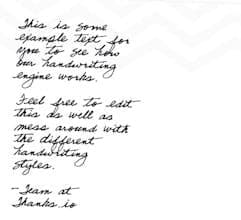 This is some
example text for
you to see how
our handwriting
engine works.
Feel free to edit
this as well as
mess around with
the different
handwriting
styles.
- Team at
Thanks.io